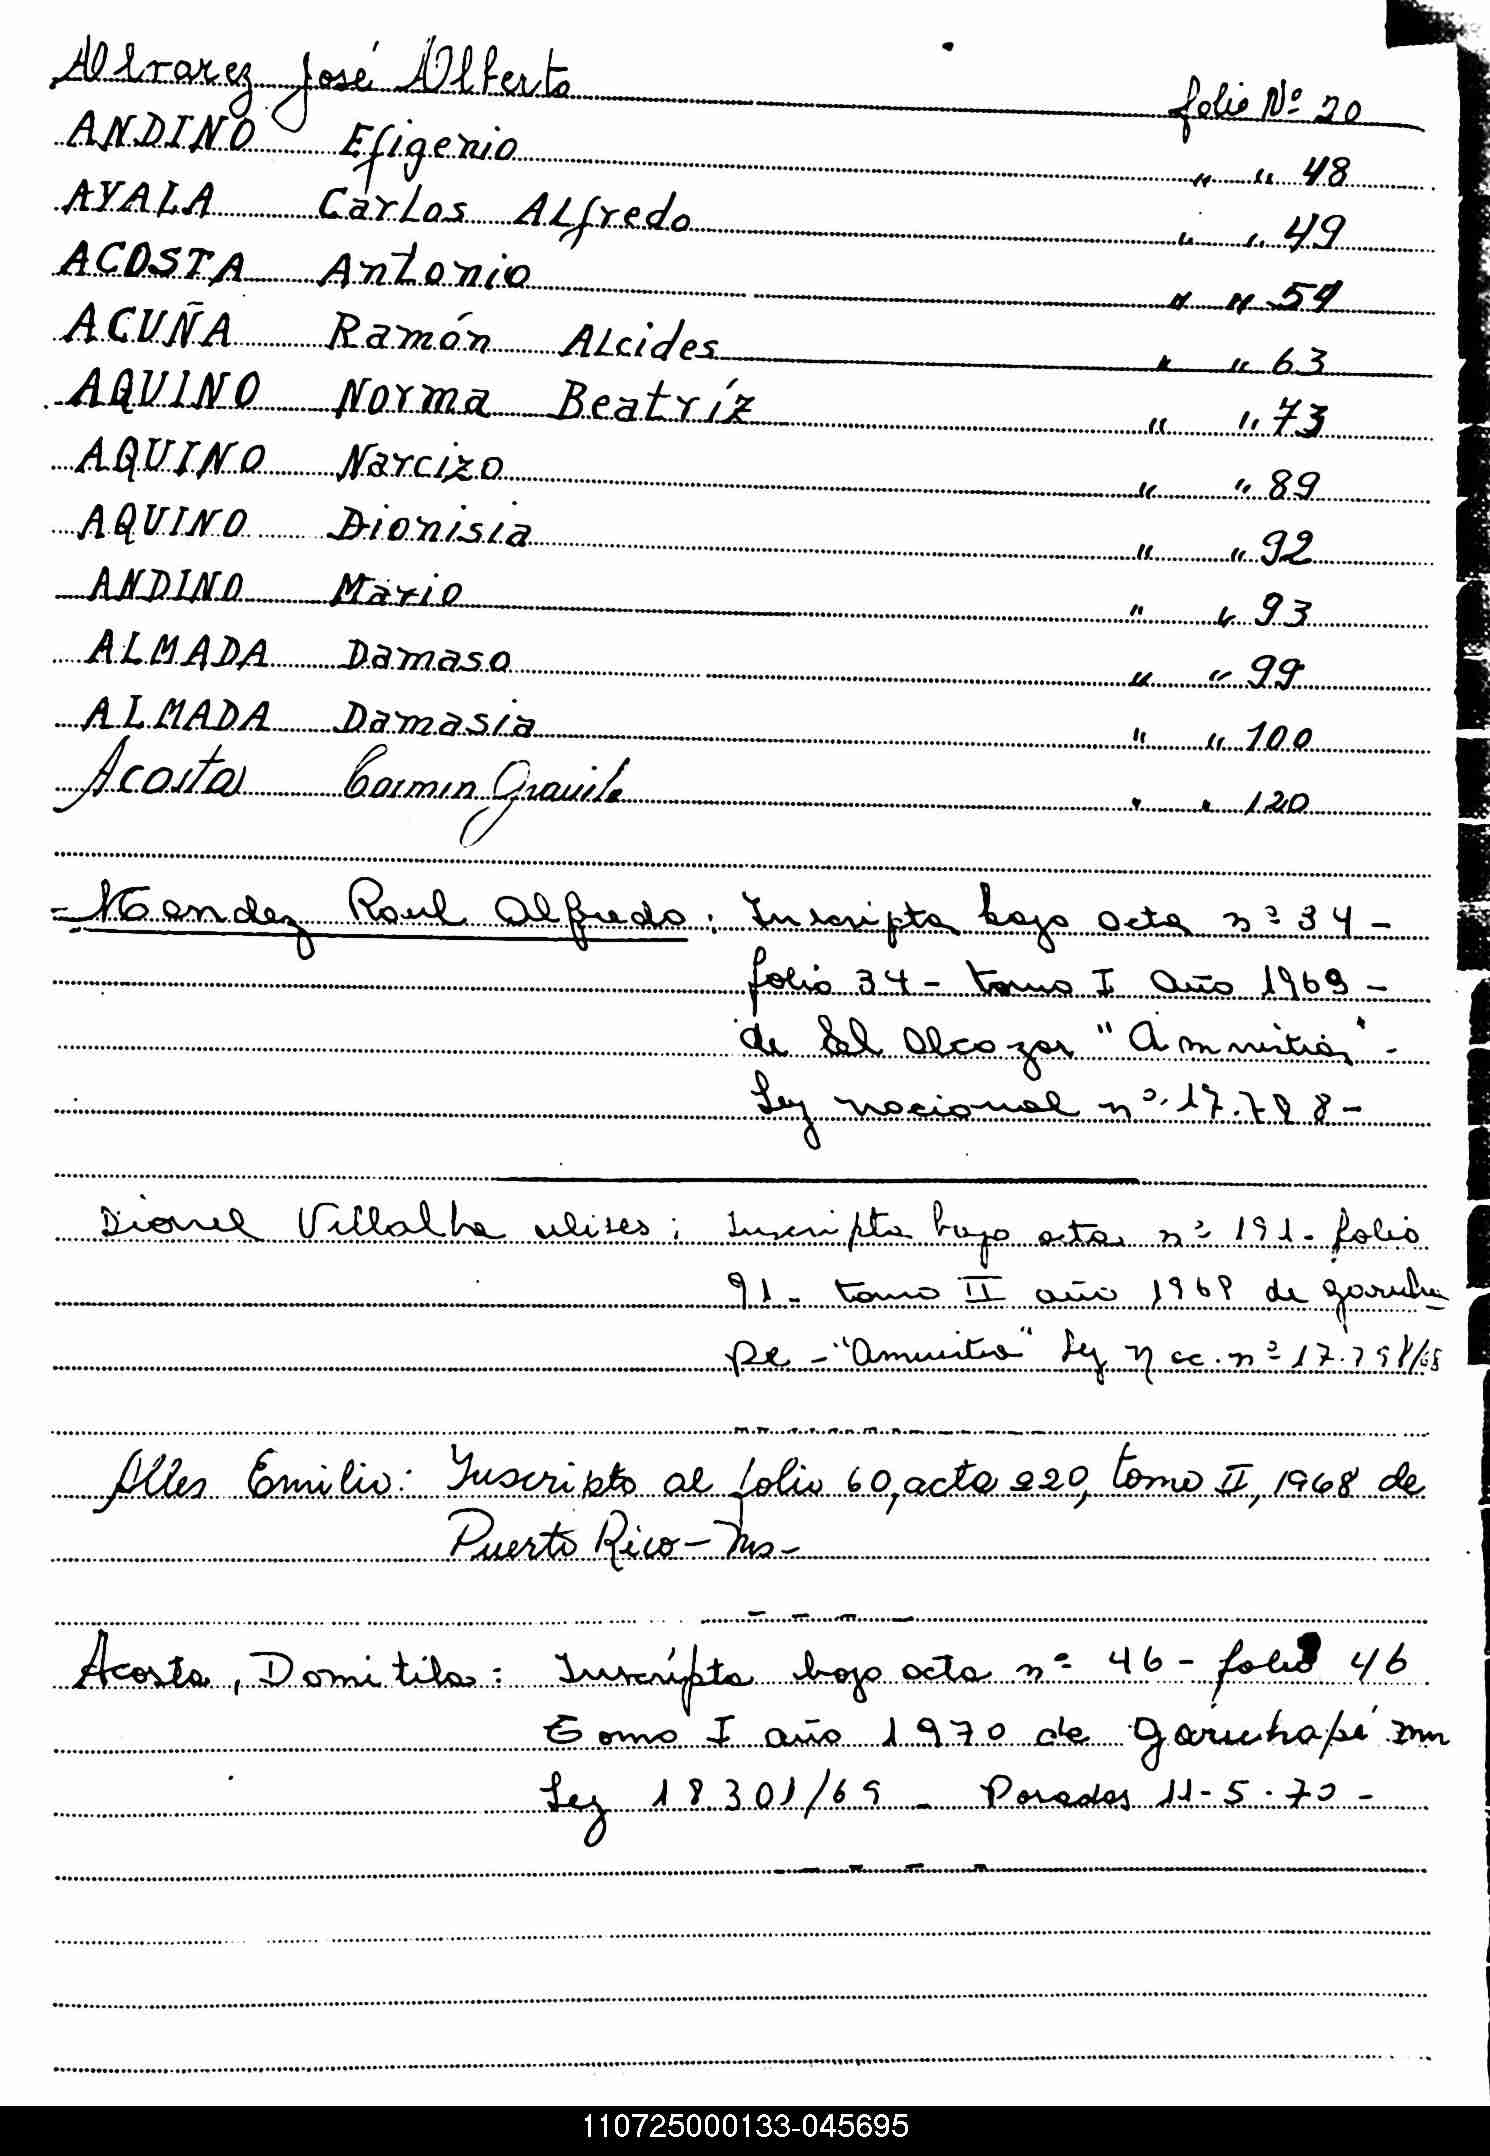 Alvarez José Alberto folio Nº 20
ANDINO Efigenio " " 48
AYALA Carlos Alfredo " " 49
ACOSTA Antonio " " 54
ACUÑA Ramón Alcides " " 63
AQUINO Norma Beatríz " " 73
AQUINO Narcizo " " 89
AQUINO Dionisia " " 92
ANDINO Mario " " 93
ALMADA Damaso " " 99
ALMADA Damasia " " 100
Acosta " " 120
- Mendez Raul Alfredo: Inscripta bajo acta nº 34 -
folio 34 - tomo I año 1969 -
de El Alcazar "Amnistia" -
Ley nacional nº 17.798 -
Dionel Villalba ulises: Inscripta bajo acta nº 191 - folio
91 - tomo II año 1968 de Garuha
pe - "Amnistia" Ley nº 17.798/68
Alles Emilio: Inscripto al folio 60, acta 220, tomo II, 1968 de
Puerto Rico - Ms -
Acosta, Domitila: Inscripta bajo acta nº 46 - folio 46
Tomo I año 1970 de Garuhapé Mn
Ley 18.301/69 - Posadas 11-5-70 -
110725000133-045695